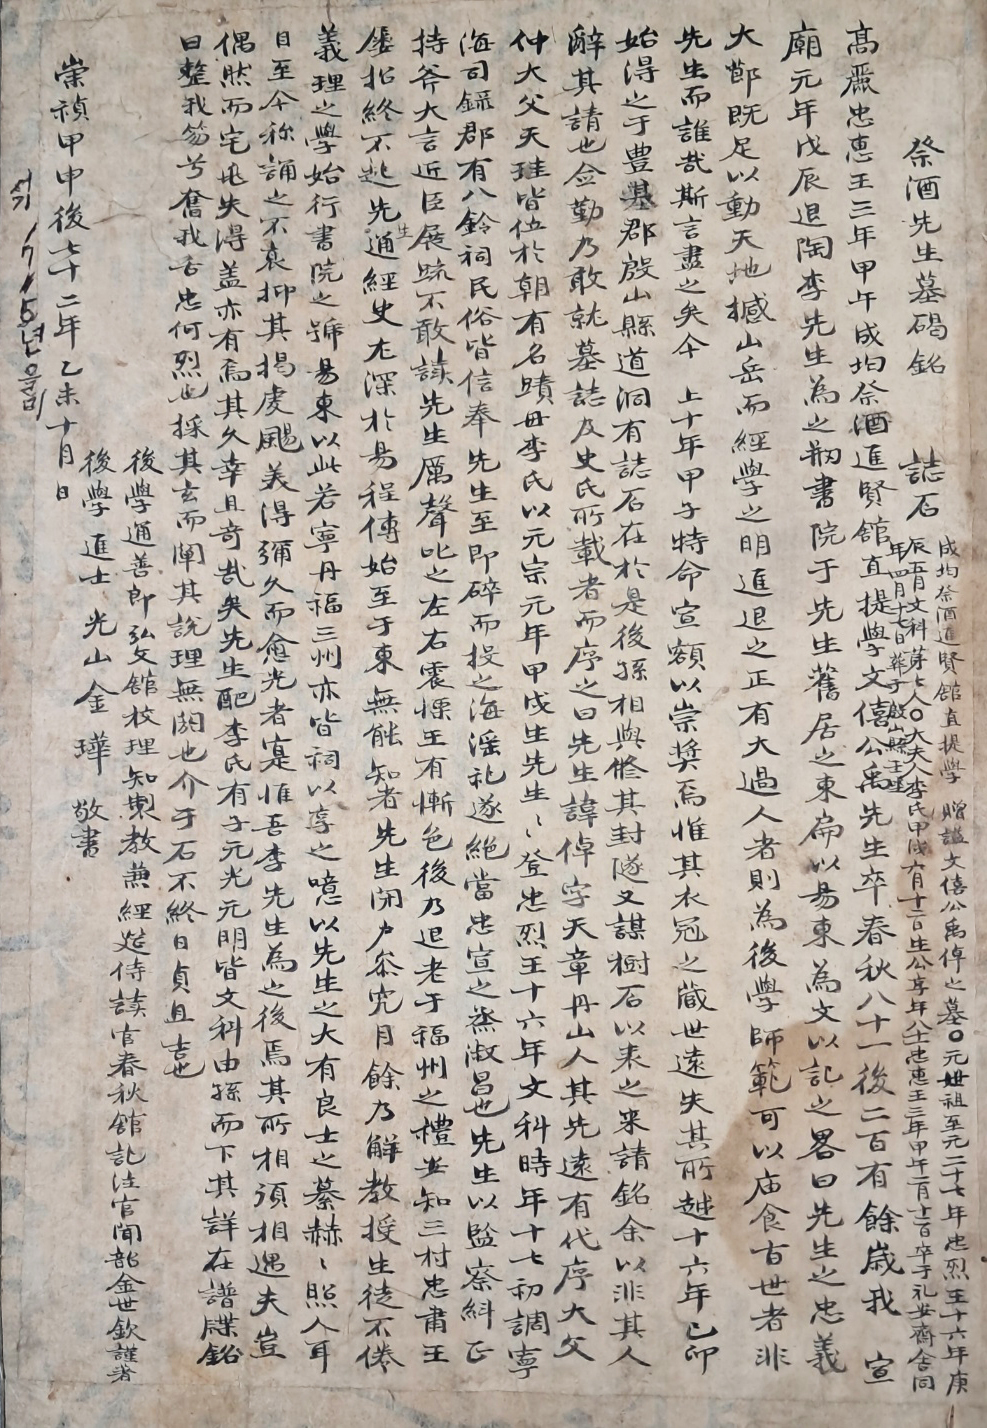 祭酒先生墓碣銘
誌石 成均祭酒進賢館直提學 贈諡文僖公禹倬之墓○元世祖至元二十七年忠烈王十六年庚
辰五月文科第七人○大夫人李氏甲戌六月十二日生公享年八十忠惠王三年甲午二月十二日卒于礼安齋舍同
年四月十七日葬于殷山縣
高麗忠惠王三年甲午成均祭酒進賢館直提學文僖公禹先生卒春秋八十一後二百有餘歲我 宣
廟元年戊辰退陶李先生為之刱書院于先生舊居之東扁以易東為文以記之畧曰先生之忠義
大節既足以動天地撼山岳而經學之明進退之正有大過人者則為後學師範可以庙食百世者非
先生而誰哉斯言盡之矣今 上十年甲子特命宣額以崇奬焉惟其衣冠之藏世遠失其所越十六年己卯
始得之于豊基郡殷山縣道洞有誌石在於是後孫相與修其封隧又謀樹石以表之來請銘余以非其人
辭其請也僉勤乃敢就墓誌及史氏所載者而序之曰先生諱倬字天章丹山人其先遠有代序大父
仲大父天珪皆仕於朝有名蹟母李氏以元宗元年甲戌生先生〻登忠烈王十六年文科時年十七初調寧
海司録郡有八鈴祠民俗皆信奉先生至即碎而投之海淫祀遂絶當忠宣之烝淑昌也先生以監察糾正
持斧大言近臣展疏不敢讀先生厲聲叱之左右震慄王有慚色後乃退老于福州之禮安知三村忠肅王
屢招終不起先生通經史尤深於易程傳始至于東無能知者先生閉户叅究月餘乃解教授生徒不倦
義理之學始行書院之號易東以此若寧丹福三州亦皆祠以享之噫以先生之大有良士之慕赫〻照人耳
目至今称誦之不衰抑其揭虔颺美得彌久而愈光者寔惟吾李先生為之後焉其所相湏相遇夫豈
偶然而宅兆失得盖亦有焉其久幸且奇哉矣先生配李氏有子元光元明皆文科由孫而下其詳在譜牒銘
曰整我笏兮奮我舌忠何烈也採其玄而闡其說理無闕也介于石不終日貞且吉也
後學通善郎弘文館校理知製教兼經筵侍讀官春秋館記注官聞韶金世欽謹著
後學進士 光山金 瑋 敬書
崇禎甲申後七十二年乙未十月日
서기 1715년 을미